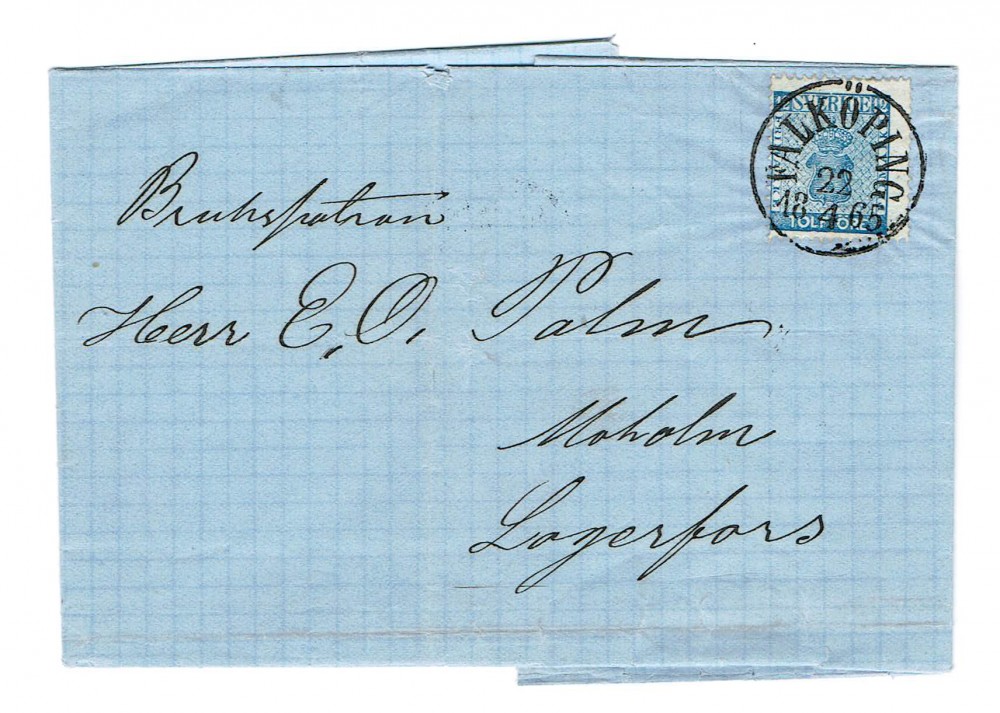 SVERIGE
FALKÖPING
22
18 4 65
TOLF ÖRE
Brukspatron
Herr E. O. Palm
Moholm
Lagerfors